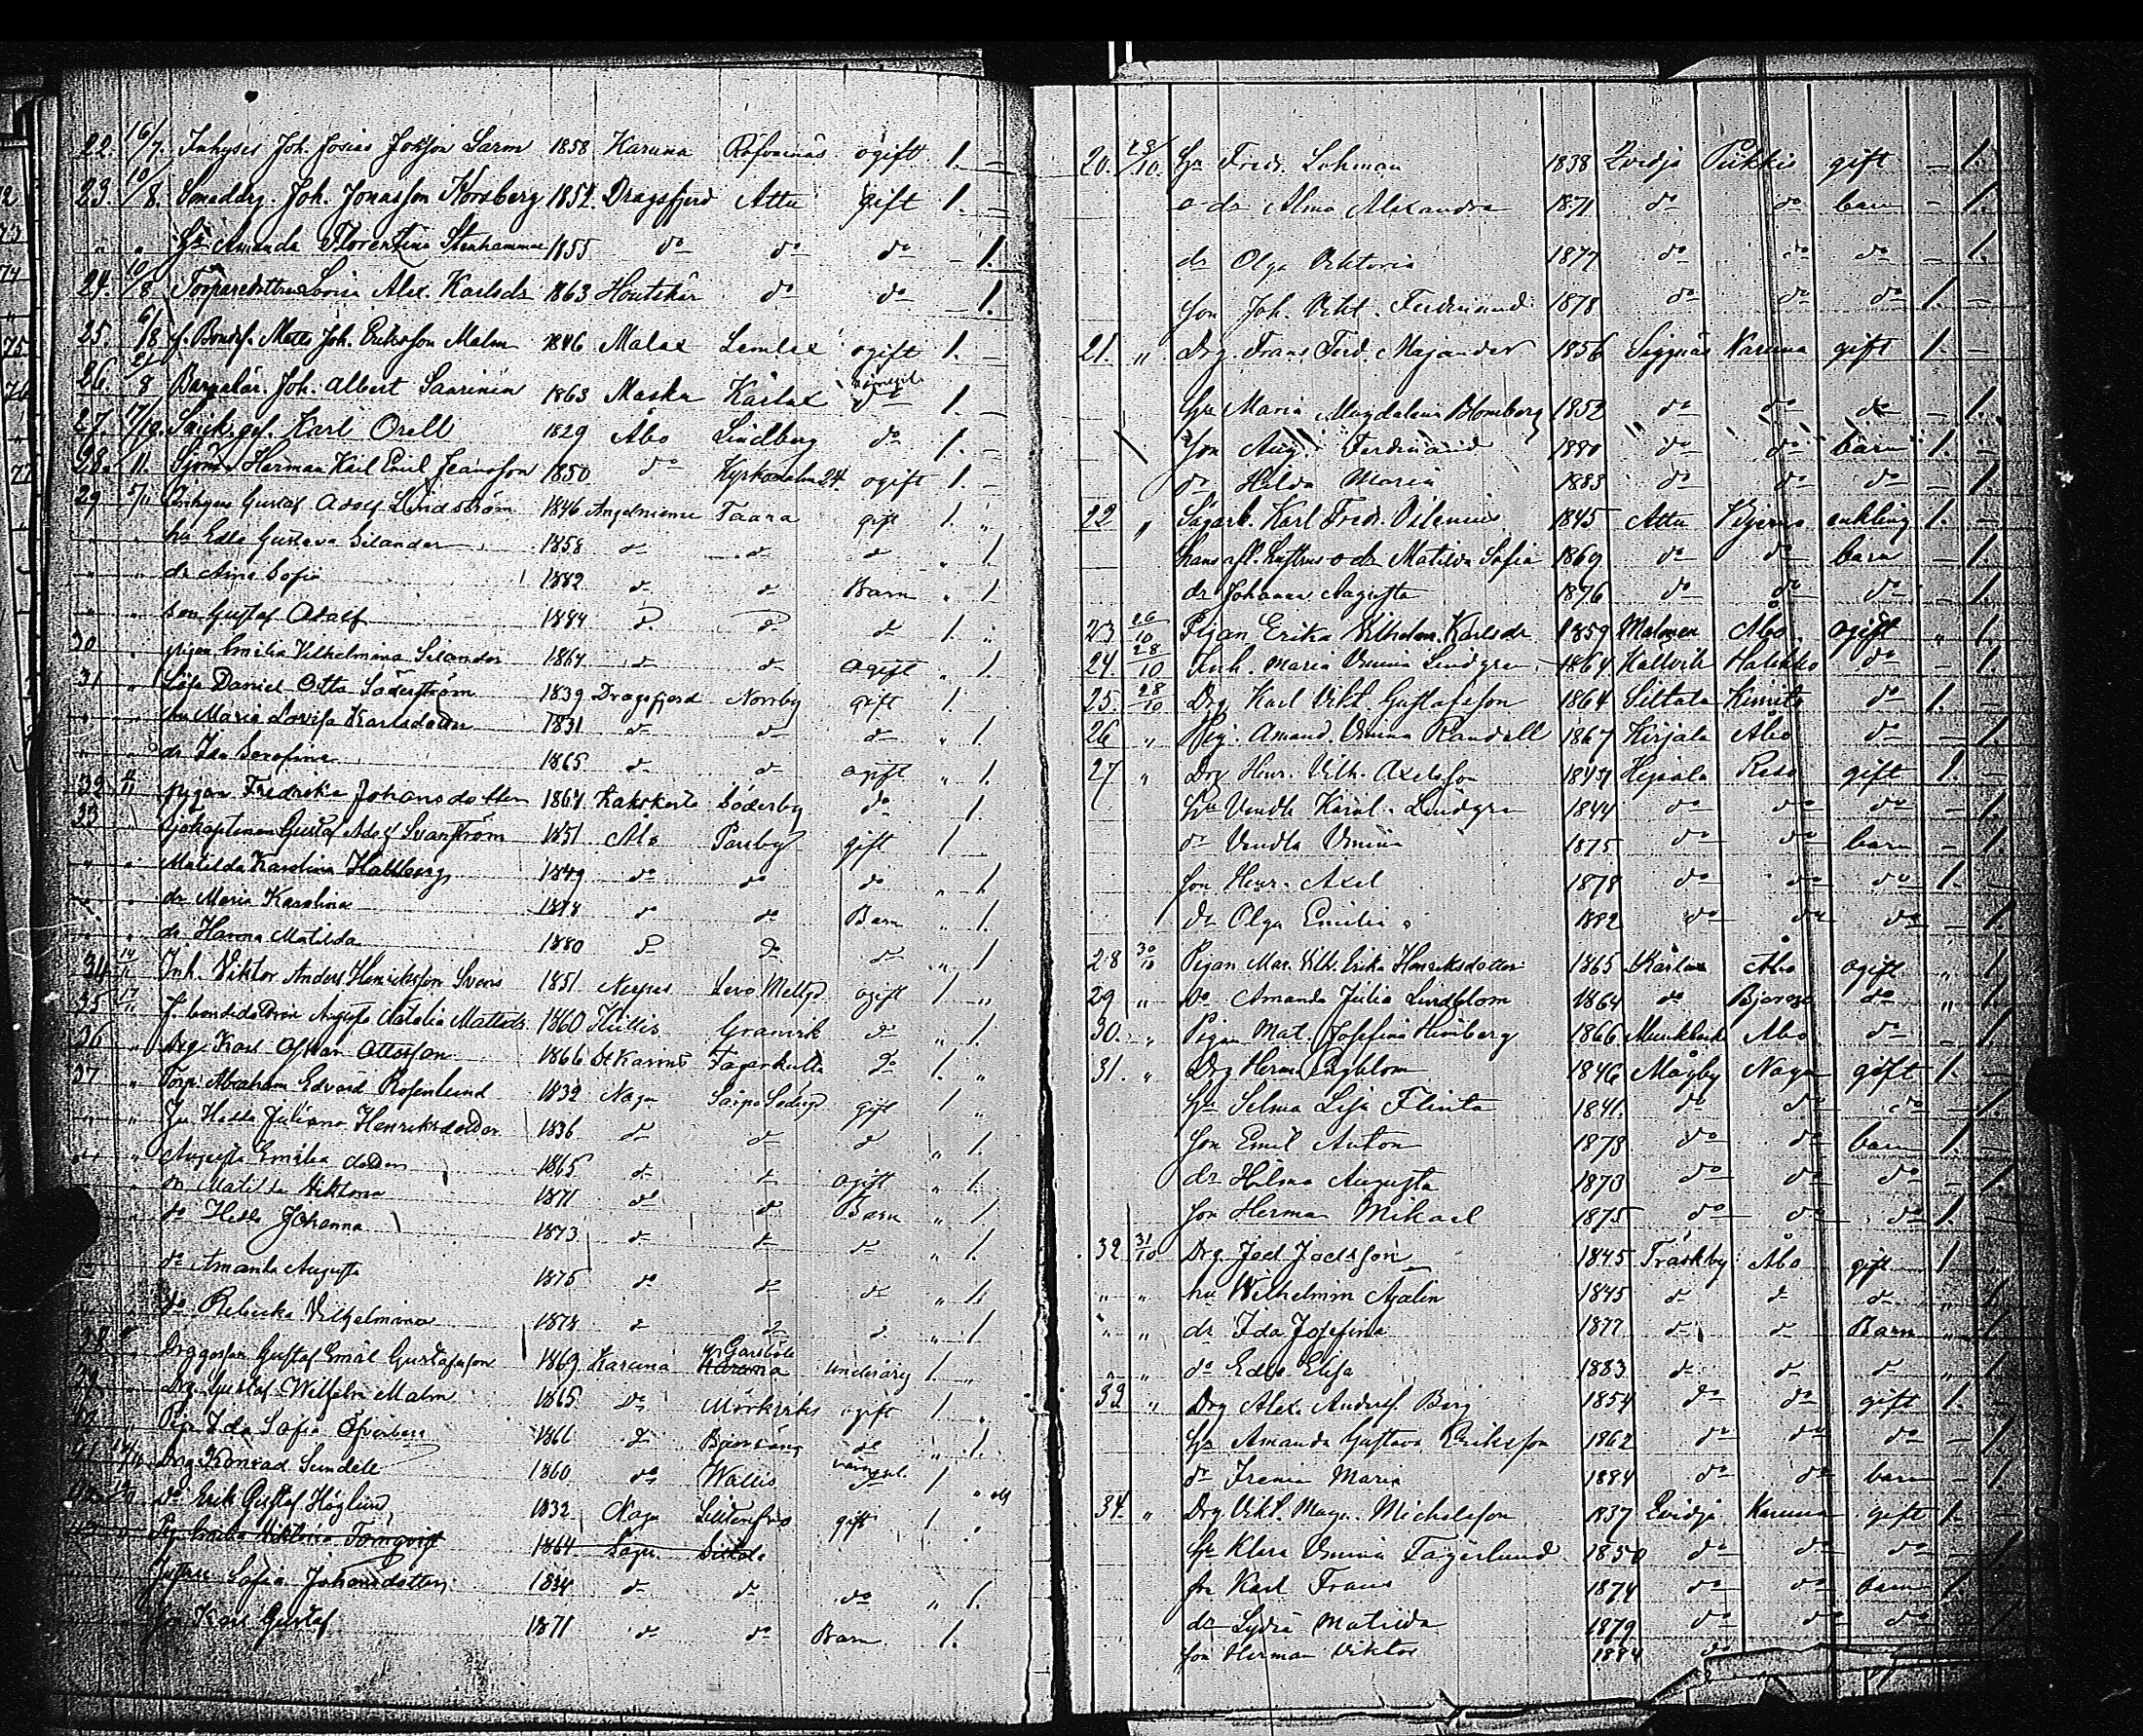 22. 16/7. Inhyses Joh. Josias Johsson Sarm 1858 Karuna Röfvarnäs ogift 1. –
23. 10/8. Sonadrg. Joh. Jonasson Korsberg 1852. Dragsfjerd Attu gift 1. –
" " Hu Amanda Florentina Stenhammar 1855 do do do – 1.
24. 10/8. Torparedottren Lovisa Alex. Karlsdr 1863 Houtskär do do – 1.
25. 6/8 f. Bondes. Matts Joh. Eriksson Malm 1846 Malax Lemlax ogift 1. –
26. 21/8 Joh. Albert Saarinen 1863 Masku Kärlax do 1. –
27. 17/10. Karl Orell 1829 Åbo Lindberg do 1. –
28. /11. Sjöm. Herman Karl Emil Jeansson 1850 do Kyrkomalm 24. ogift 1. –
29 5/11 Inhyses Gustaf Adolf Lindström 1846 Angelniemi Taara gift 1. "
" " hu Edla Gustava Silander 1858 d d d " 1.
" " dr Aina Sofia 1882 d d Barn " 1
" " son Gustaf Adolf 1884 d d d 1. "
30 " pigan Emilia Vilhelmina Silander 1864 d d ogift " 1.
31 " Lösa Daniel Otto Söderström 1839 Dragsfjerd Norrby gift 1.
" " hu Maria Lovisa Karlsdotter 1831 d d d " 1.
" " dr Ida Serafina 1865 d d ogift " 1.
32 /11 pigan Fredrika Johansdotter 1864 Kakskerta Söderby do 1.
33 " Sjökaptenen Gustaf Adolf Svanström 1851 Åbo Parsby gift 1
" " Matilda Karolina Hallberg 1849 do do do " 1.
" " dr Maria Karolina 1878 do do Barn " 1.
" " dr Hanna Matilda 1880 d do d " 1
34 14/11 Inh. Viktor Anders Henriksson Svens 1851 Nerpes Levo Mellgd ogift 1 "
35 17/11 f. bondedottren Augusta Natalia Mattsdr 1860 Hittis Granvik d " 1.
36 " Drg Karl Oskar Ottosson 1866 St Karins Fagerkulla d 1. "
37 " Torp. Abraham Edvard Rosenlund 1832 Nagu Sarpo Södergd gift 1 "
" " hu Hedda Juliana Henriksdotter 1836 d d d " 1.
" " Augusta Emilia dotter 1865 d d ogift " 1.
" dr Matilda Viktoria 1871 do d Barn " 1
" do Hedda Johanna 1873 d d d " 1.
do Amanda Augusta 1875 do d d " 1.
" " do Rebecka Vilhelmina 1878 d d d " 1
38 " Drggossen Gustaf Emil Gustafsson 1869 Karuna Garsböle Karuna underårig 1 "
39 " Drg Gustaf Wilhelm Malm 1865 do Mörkviks ogift 1 "
40 " Pig. Ida Sofia Öfverberg 1866 d Bjensäng do " 1.
41 19/11 Drg Konrad Sundell 1860 do Wallis do 1 "
do Erik Gustaf Höglund 1832 Nagu gift 1 "
43 Pig Emilia Viktoria Törnqvist 1864 Sagu
hustru Sofia Johansdotter 1834 d d do " 1.
Son Karl Gustaf 1871 d do Barn 1.
20. 23/10. Hu Fredr. Lohman 1838 Qvidja Pikkis gift – 1.
o dr Alma Alexandra 1871 do do barn – 1.
dr Olga Viktoria 1877 do do do – 1.
son Joh. Vikt. Ferdinand 1878 do do do 1. –
21. " Drg. Frans Ferd. Majander 1856 Siggnäs Karuna gift 1. –
Hu Maria Magdalena Blomberg 1852 do do do – 1.
Son Aug. Ferdinand 1880 do do barn 1. –
dr Hilda Maria 1883 do do do – 1.
22 " Sågarb. Karl Fredr. Vilenius 1845 Attu Bjerno enkling 1. –
hans afl. hustrus o dr Matilda Sofia 1869 do do barn – 1.
dr Johanna Augusta 1876 do do do – 1.
23 26/10 Pigan Erika Vilhelm. Karlsdr 1859 Malmen Åbo ogift " 1.
24. 28/10 Inh. Maria Vmina Lindgren 1864 Kallvik Halikko do – 1.
25. 28/10 Drg Karl Vikt. Gustafsson 1864 Siltala Kimito do 1. –
26 " Pig. Amand. Vmina Randell 1867 Kirjala Åbo do – 1
27 " Drg Henr. Vilh. Axelsson 1844 Heisala Reso gift 1. –
Hu Vendla Karol. Lindgren 1844 do do do – 1.
dr Vendla Vmina 1875 do do barn – 1
son Henr. Axel 1878 do do do 1. –
dr Olga Emilia 1882 do do do – 1.
28 30/10 Pigan Mar. Vilh. Erika Henriksdotter 1865 Kärlax Åbo ogift " 1.
29 " do Amanda Julia Lindblom 1864 do Bjerno do " 1.
30. " Pigan Mat. Josefina Himberg 1866 Munkbacka Åbo do – 1.
31. " Drg Herm. Engblom 1846 Mågby Nagu gift 1. –
Hu Selma Lisa Flinta 1841 do do do – 1.
Son Emil Anton 1878 do do barn 1. –
dr Hilma Augusta 1873 do do do – 1
Son Herman Mikael 1875 do do do 1. –
32. 31/10 Drg. Joel Joelsson 1845 Träskby Åbo gift 1
" " hu Wilhelmin Ajalin 1845 d d d " 1.
" " dr Ida Josefina 1877 d d Barn " 1.
" " do Edla Elisa 1883 d d d " 1
32 " Drg Alex. Andersf. Berg 1854 do do gift 1. –
Hu Amanda Gustava Eriksson 1862 do do do – 1.
dr Irenia Maria 1884 do do barn – 1
34. " Drg Vikt. Magn. Michelsson 1837 Qvidja Karuna gift 1. –
Hu Klara Vmina Fagerlund 1850 do do do – 1.
son Karl Frans 1874 do do barn 1. –
dr Lydia Matilda 1879 do do do – 1.
son Herman Viktor 1884 do